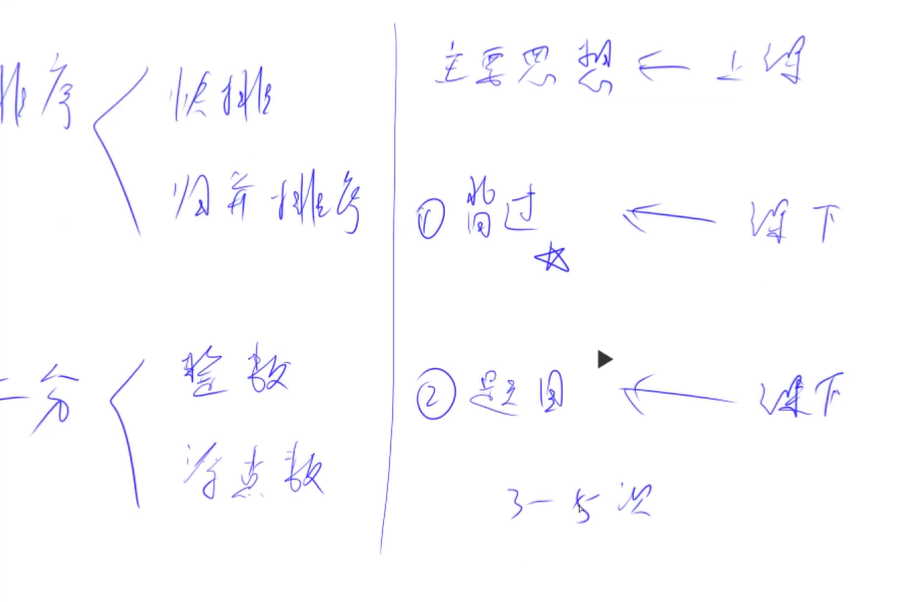 排序
快排
归并排序
二分
整数
浮点数
主要思想 ← 上课
① 背过 ← 课下
☆
② 题目 ← 课下
3-5次